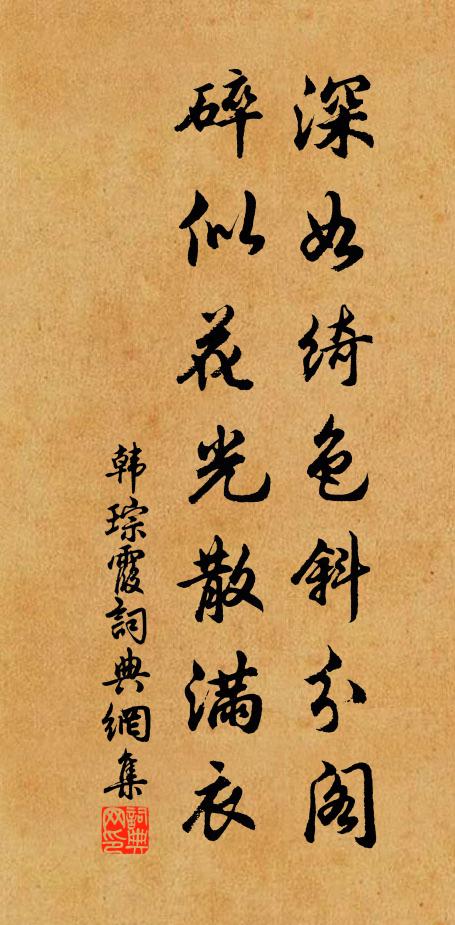 深如綺色斜分閣
碎似花光散滿衣
韩琮霞詞典網集
詞典网印